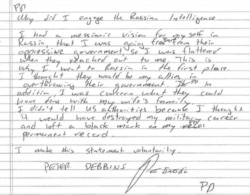 PD
Why did I engage the Russian Intelligence
I had a messianic vision for myself in
Russia, that I was going to free them from their
oppressive government, so I was flattered
when they reached out to me. This is
why I went to Russia in the first place.
I thought they would be my allies in
overthrowing their government. In
addition I was concerned what they could
have done with my wife's family.
I didn't tell US authorities because I thought
it would have destroyed my military career
and left a black mark on my
permanent record
I make this statement voluntarily.
PETER DEBBINS
PD